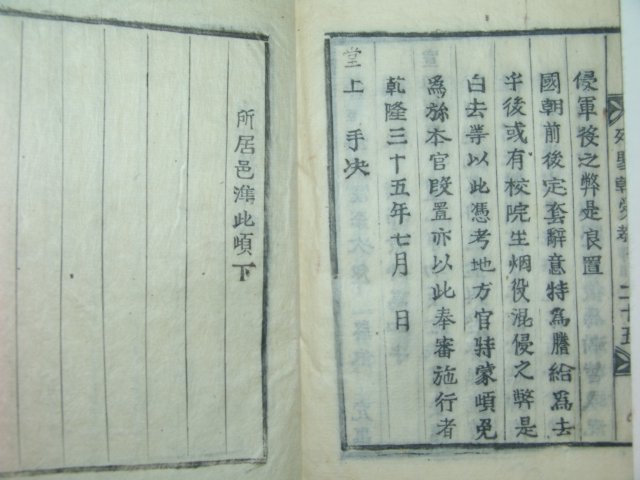 列聖朝受教
二十五
侵軍後之弊是良置
國朝前後定套辭意特爲謄給爲去
乎後或有校院生烟役混侵之弊是
白去等以此憑考地方官特蒙頉免
爲旀本官段置亦以此奉審施行者
乾隆三十五年七月　日
堂上　手决
所居邑準此頉下